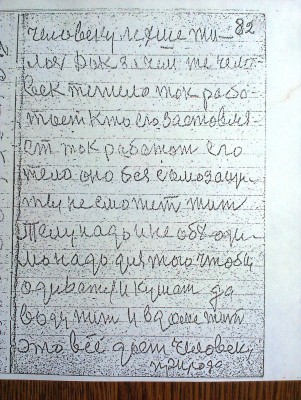 82
человеку легше жи-
лоя Вок зачем те чело
век тежело ток рабо-
тает кто его заставля-
ет ток работат его
тело оно без самозащи-
ты не сможет жит
телу надо и не обходи
мо надо для того чтобы
одиват и кушат да
воду пит и в доме жит
это всё дает человеку
природа